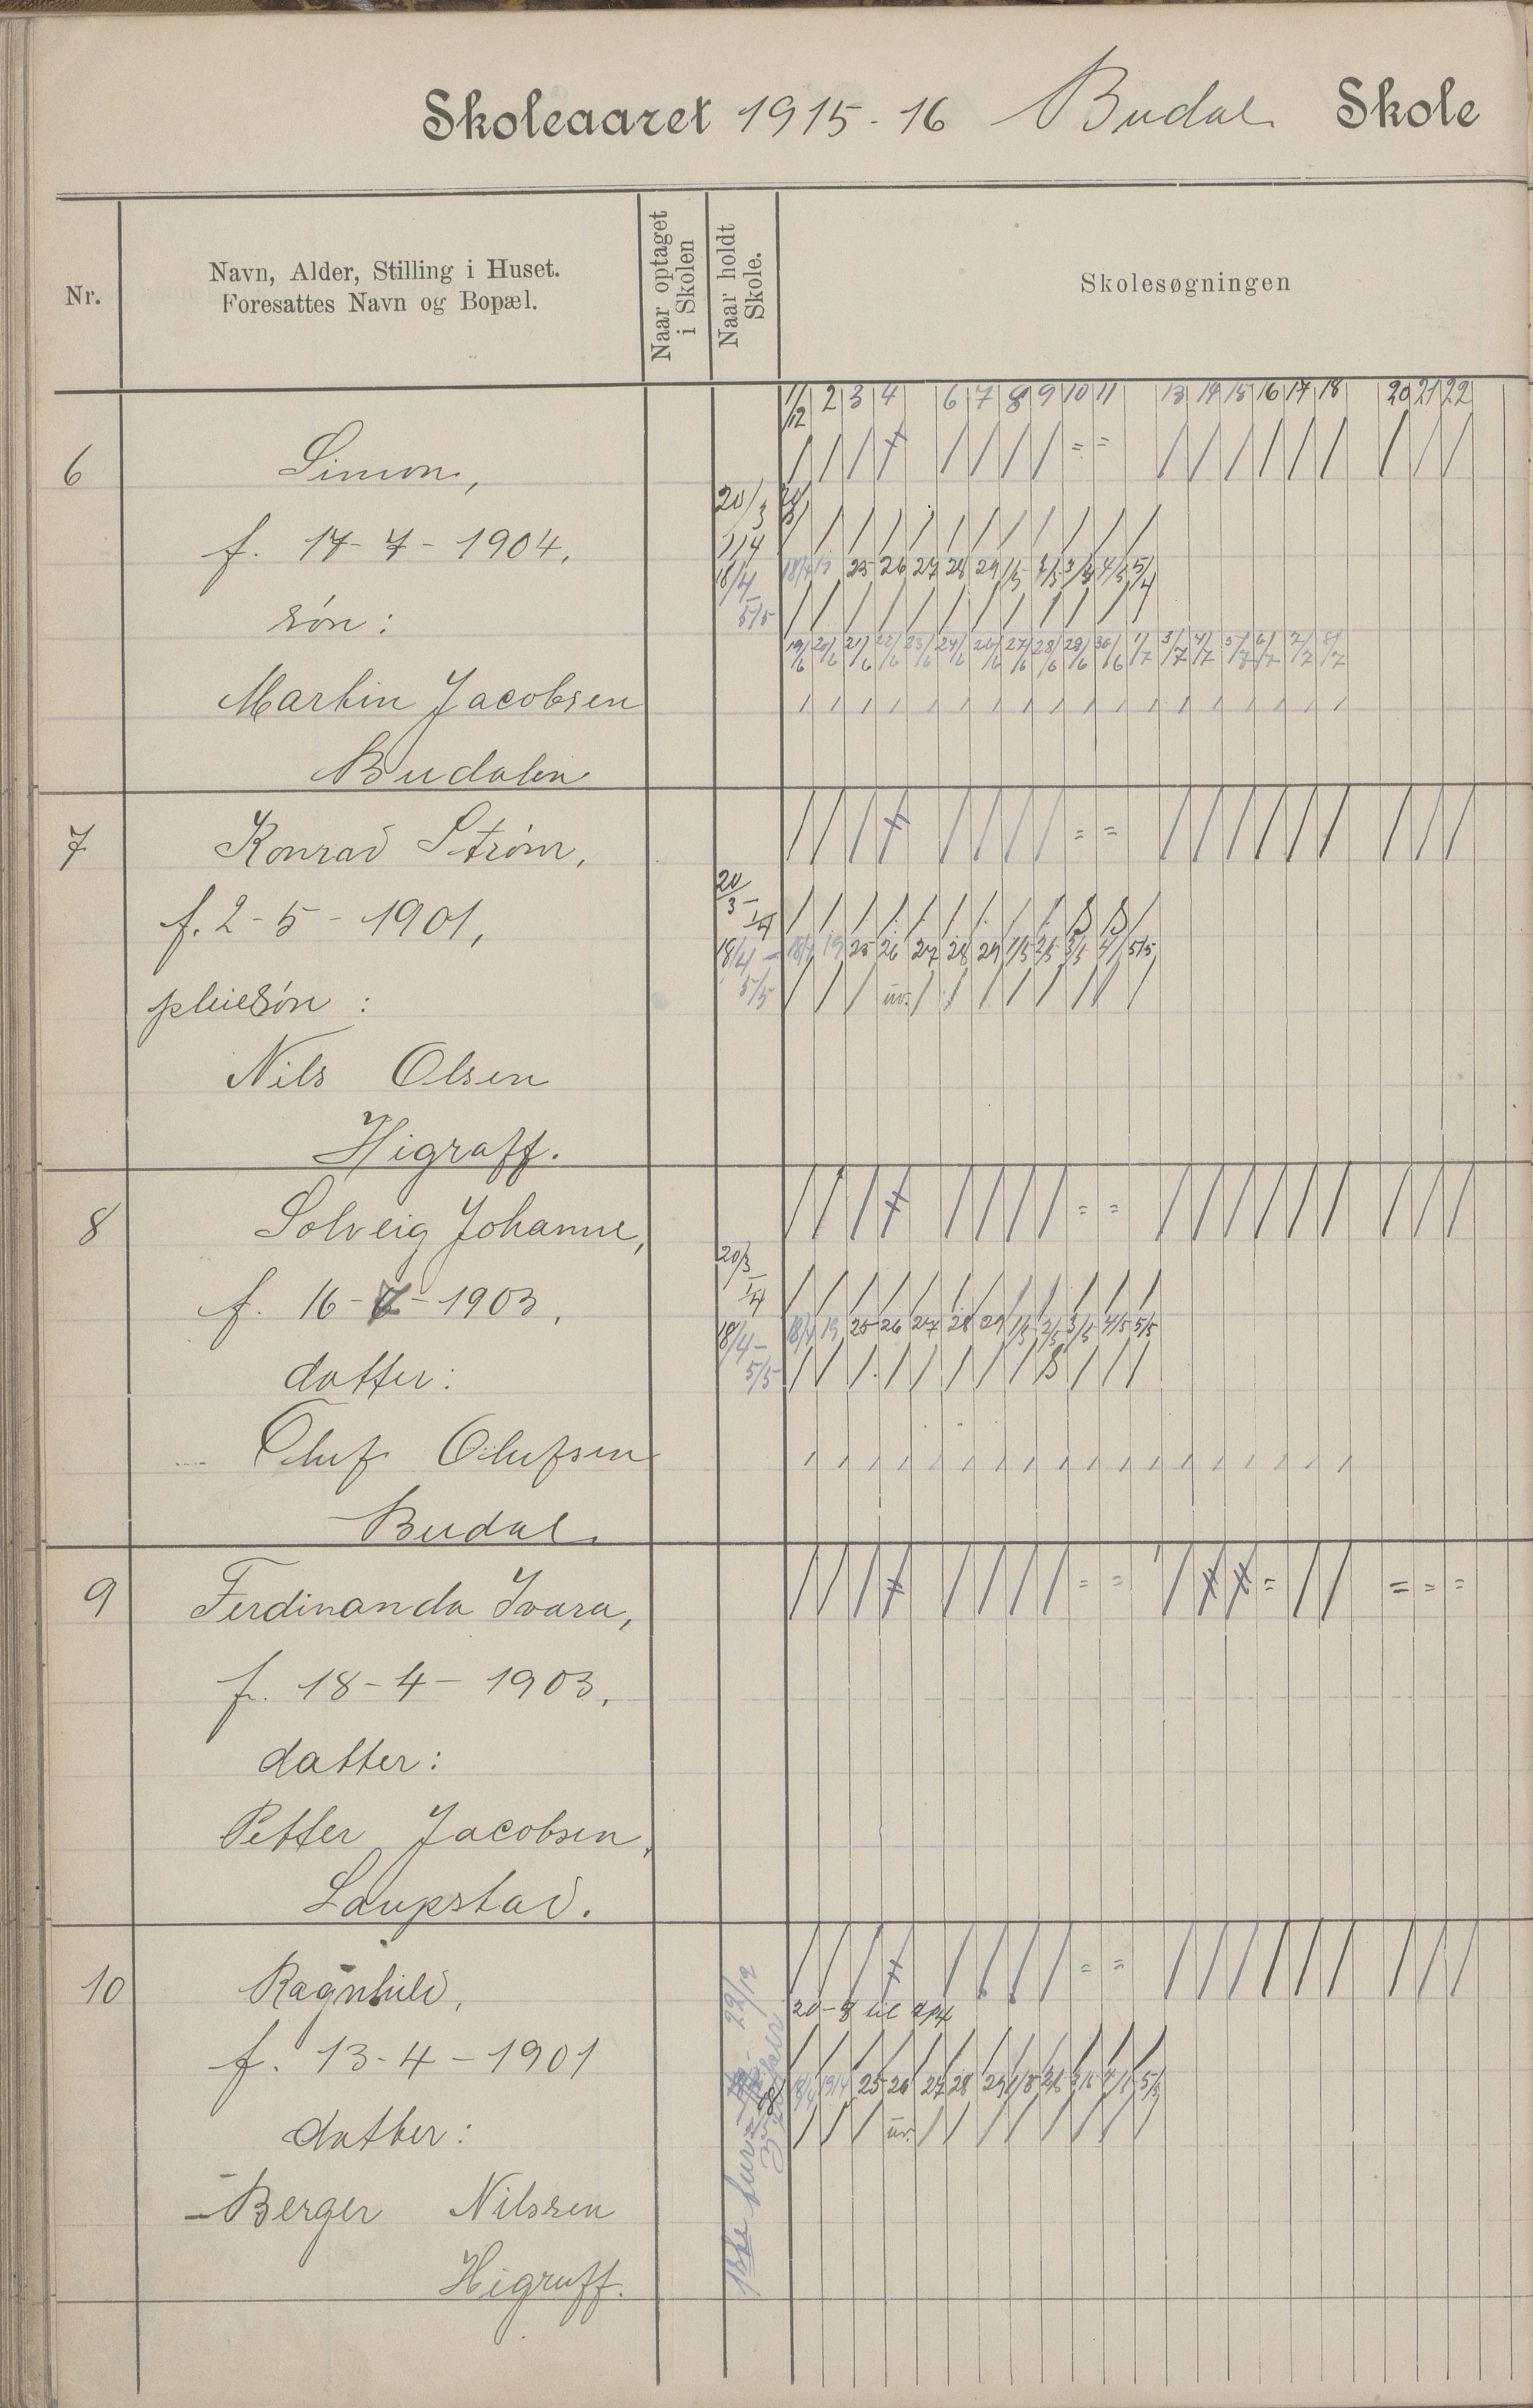 Skoleaaret 1915-16 Budal Skole
Nr.
Navn, Alder, Stilling i Huset.
Foresattes Navn og Bopæl.
Naar optaget
i Skolen
Naar holdt
Skole.
Skolesøgningen
1/12 2 3 4 6 7 8 9 10 11 13 14 15 16 17 18 20 21 22
6 Simon,
20/3
f. 17-7-1904,
1/4
18/4 18/4 19 25 26 27 28 29 1/5 2/5 3/5 4/5
søn:
5/5
19/6 20/6 21/6 22/6 23/6 24/6 26/6 27/6 28/6 29/6 30/6 1/7 3/7 4/7 5/7 6/7 7/7 8/7
Martin Jacobsen
Budalen
7 Konrad Strøm,
20/3 - 1/4
f. 2-5-1901,
18/4 - 18/4 19 25 26 27 28 29 1/5 2/5 3/5 4/ 5/5
5/5
pleiesøn:
Nils Olsen
Higraff.
8 Solveig Johanne,
20/3 - 1/4
f. 16-7-1903,
18/4 - 18/4 19 25 26 27 28 29 1/5 2/5 3/5 4/5 5/5
5/5
datter:
Oluf Olufsen
Budal.
9 Ferdinanda Ivara,
f. 18-4-1903,
datter:
Petter Jacobsen,
Laupstad.
10 Ragnhild,
f. 13-4-1901
18/4 19/4 25 26 27 28 29 1/5 2/5 3/5 4/5 5/5
datter:
Berger Nilssen
Higraff.
22/12